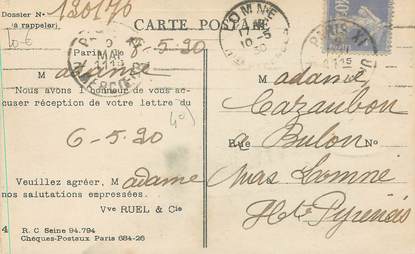 Dossier No 130170
(à rappeler)
CARTE POSTALE
10 €
Paris, le 8-5-30
Madame
Nous avons l'honneur de vous ac-
cuser réception de votre lettre du
6-5-30
Veuillez agréer, Madame
nos salutations empressées.
Vve RUEL & Cie
4
R. C. Seine 94.794
Cheques-Postaux Paris 684-26
LOMNE
17
10-5
30
MAI
1115
PARIS XI
1115
Madame
Cazaubon
Rue à Bulon No
Mas Lomné
Htes Pyrénées